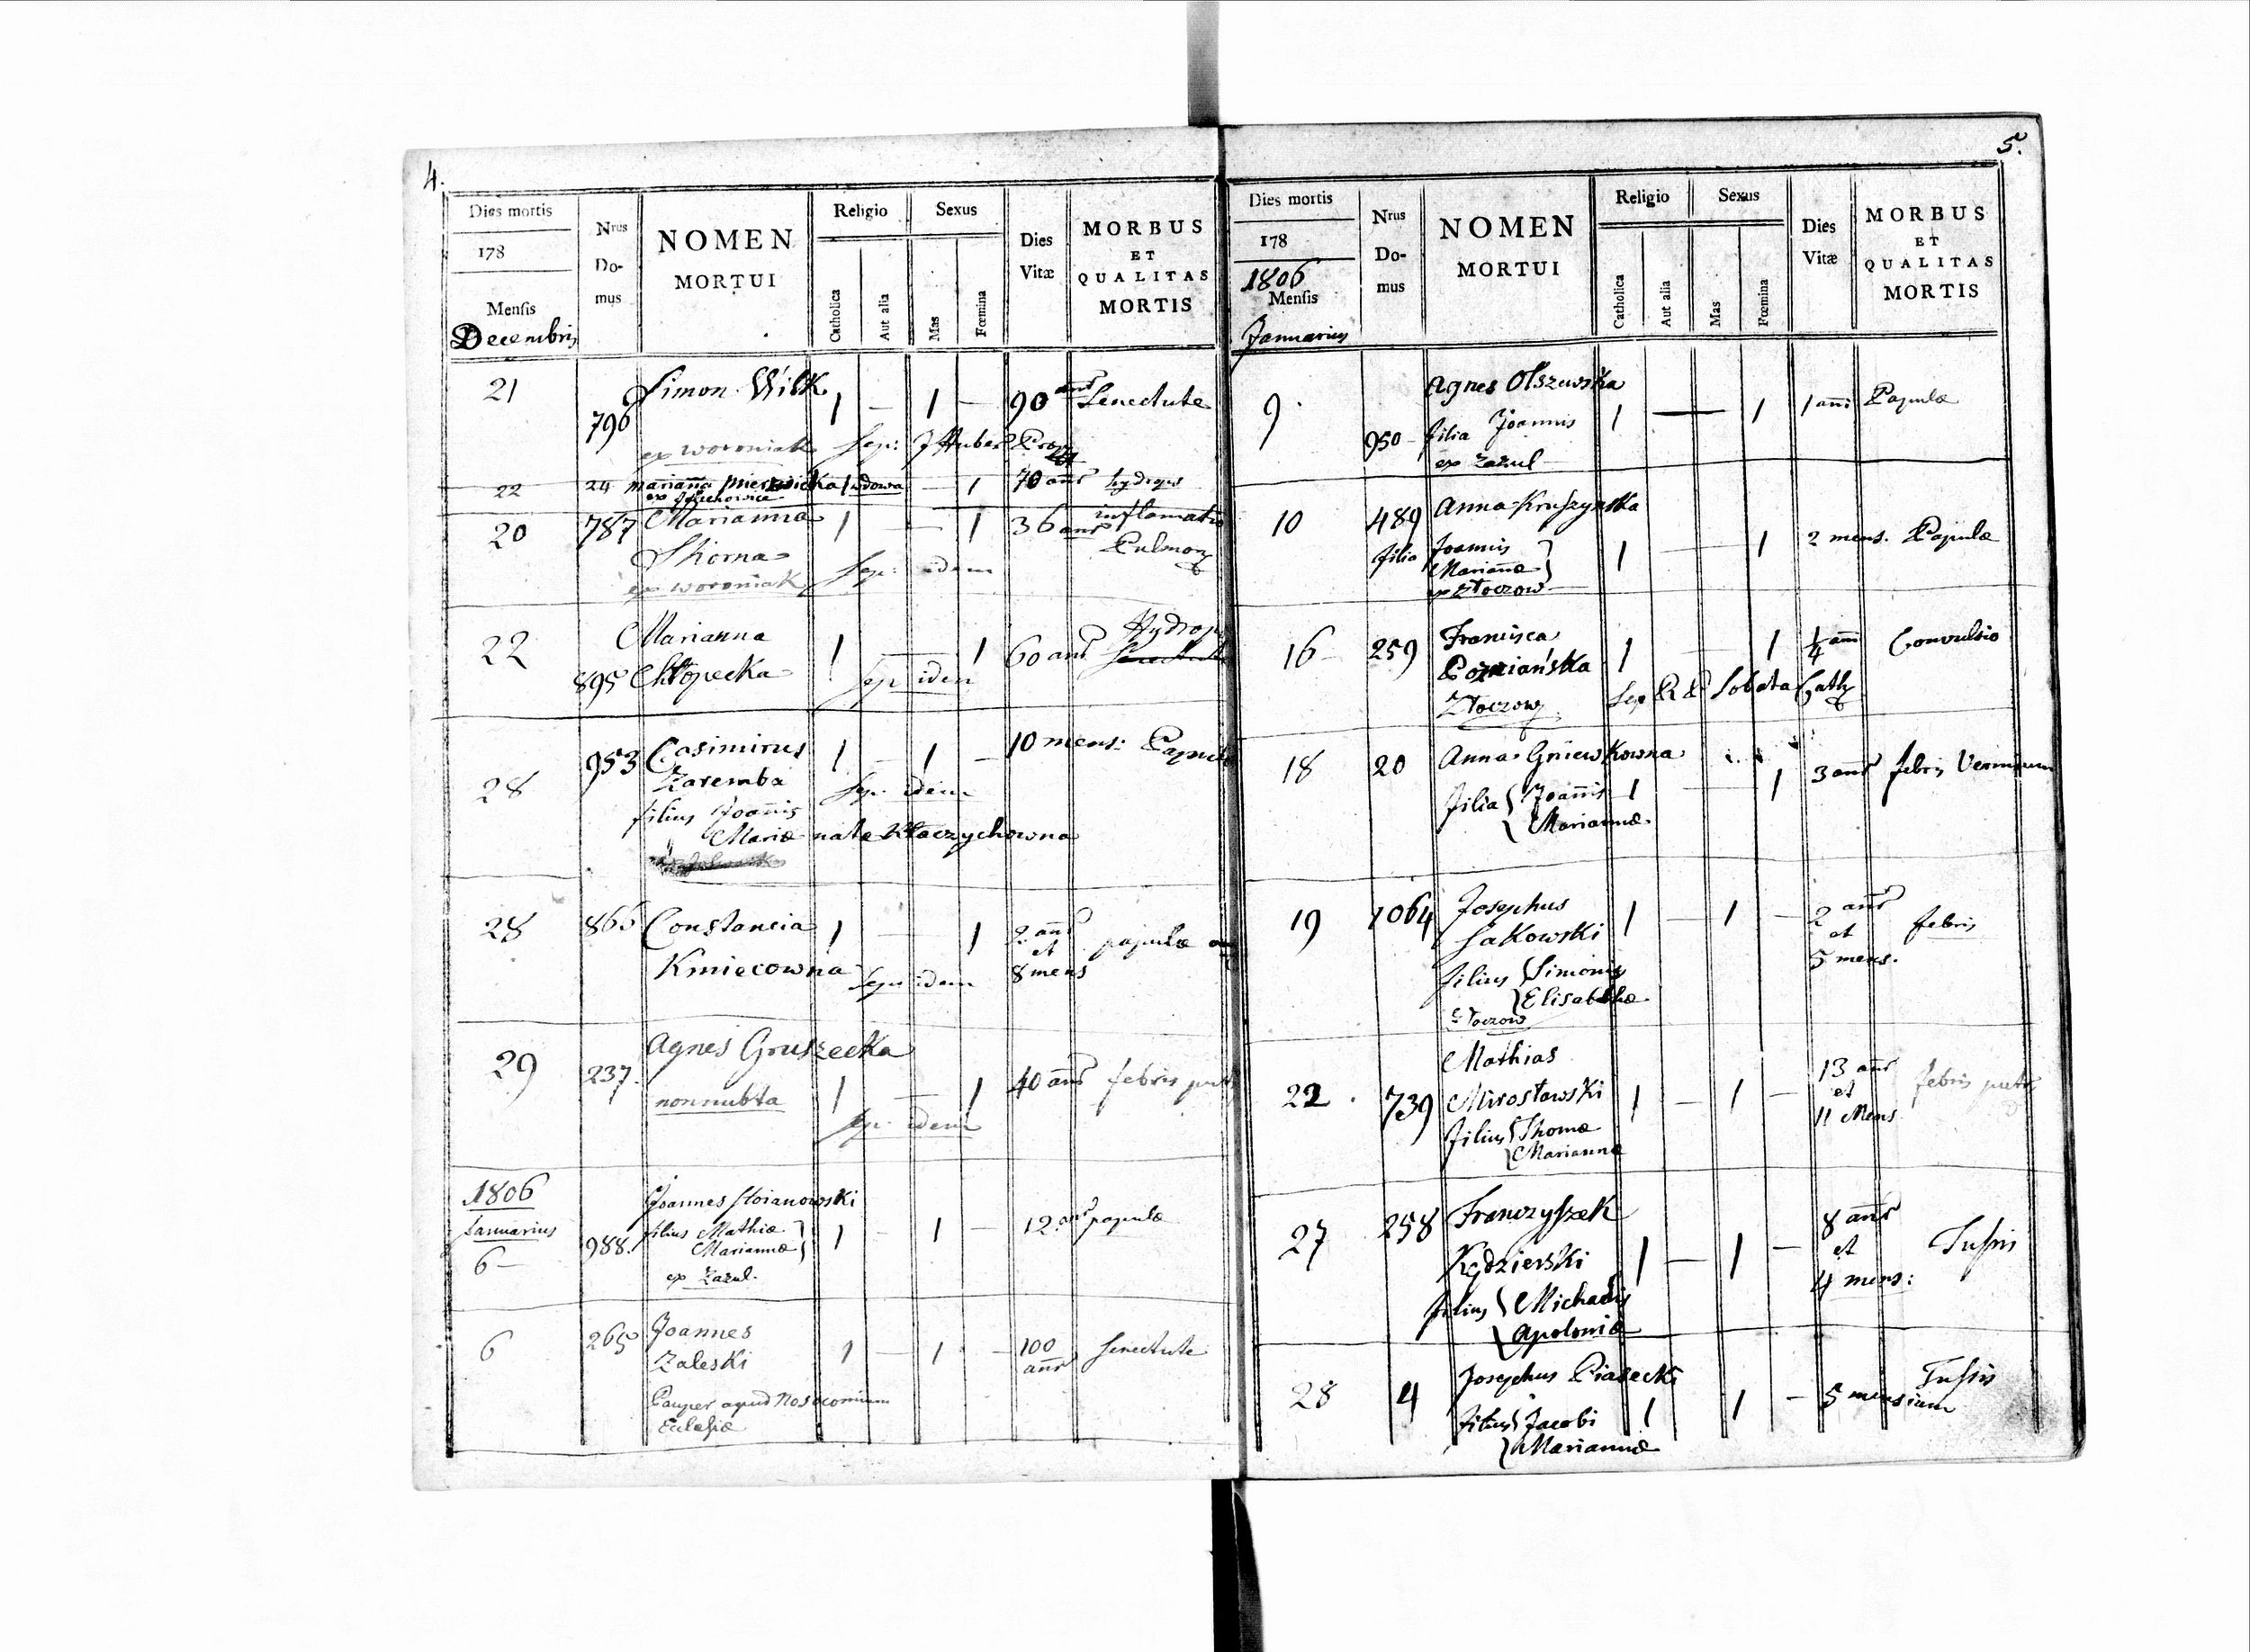 4.
Dies mortis
178
Mensis
Decembris
Nrus
Do-
mus
NOMEN
MORTUI
Religio
Catholica
Aut alia
Sexus
Mas
Fœmina
Dies
Vitæ
MORBUS
ET
QUALITAS
MORTIS
21 796 Simon Wilk 1 — 1 — 90 anr Senectute
ex woroniak Sep: J Huber
22 24 marianna wdowa — 1 70 anr hydrops
20 787 Marianna 1 — 1 36 anr inflamatio
Skorna Pulmon
ex woroniak Sep: idem
22 Marianna 1 — 1 60 anr Hydrops
895 Chłopecka Sep idem
28 953 Casimirus 1 — 1 — 10 mens: Papulæ
Zaremba Sep. idem
filius Joannis
Mariæ natæ Kłaczychowna
28 866 Constancia 1 — 1 2 anr papulæ
et
Kmiecowna Sep. idem 8 mens
29 237. Agnes Gruszecka
nonnubta 1 — 1 40 anr febris putr
Sep. idem
1806
Januarius
6 — 988. Joannes Stoianowski
filius Mathiæ 1 — 1 — 12 anr papulæ
Mariannæ
ex Zazul.
6 265 Joannes
Zaleski 1 — 1 — 100 anr Senectute
Pauper apud Nosocomium
Eclesiæ
5.
Dies mortis
178
1806
Mensis
Januarius
Nrus
Do-
mus
NOMEN
MORTUI
Religio
Catholica
Aut alia
Sexus
Mas
Fœmina
Dies
Vitæ
MORBUS
ET
QUALITAS
MORTIS
9. Agnes Olszewska
950 filia Joannis 1 — 1 1 anni Papulæ
ex Zazul
10 489 Anna Kruszynska
filia Joannis 1 — 1 2 mens. Papulæ
Mariannæ
ex Złoczow
16 259 Francisca 1 — 1 1/4 anni Convulsio
Pozniańska
Złoczow Sep R P Sobota Cath
18 20 Anna Gniewkowna
filia Joannis 1 — 1 3 anr febris Verminum
Mariannæ.
19 1064 Josephus 1 — 1 — 2 anr febris
Sakowski et
5 mens.
filius Simonis
Elisabethæ
Złoczow
22. 739 Mathias
Mirosławski 1 — 1 — 13 anr febris putr
et
11 Mens
filius Thomæ
Mariannæ
27 258 Franczyszek 8 anr
Kędzierski 1 — 1 — et Tussis
4 mens:
filius Michaelis
Apoloniæ
28 4 Josephus Piasecki Tussis
filius Jacobi 1 1 — 5 mensium
Mariannæ